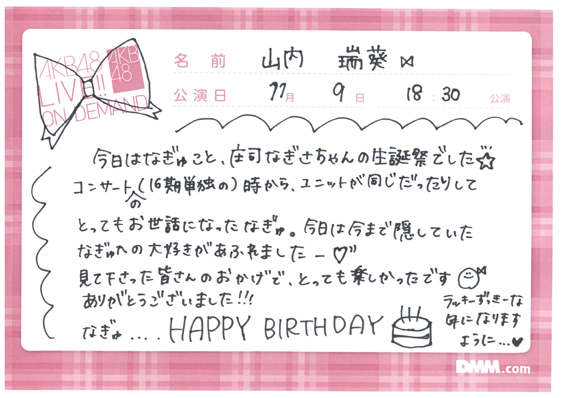 AKB48
LIVE!!
ON DEMAND
AKB
48
名前 山内 瑞葵
公演日 11月 9日 18:30 公演
今日はなぎゅこと、庄司なぎさちゃんの生誕祭でした☆
コンサート(16期単独の)の時から、ユニットが同じだったりして
とってもお世話になったなぎゅ。今日は今まで隠していた
なぎゅへの大好きがあふれましたー♡"
見て下さった皆さんのおかげで、とっても楽しかったです
ありがとうございました!!!
なぎゅ.... HAPPY BIRTHDAY
ラッキーずっきーな
年になります
ように...♥
DMM.com